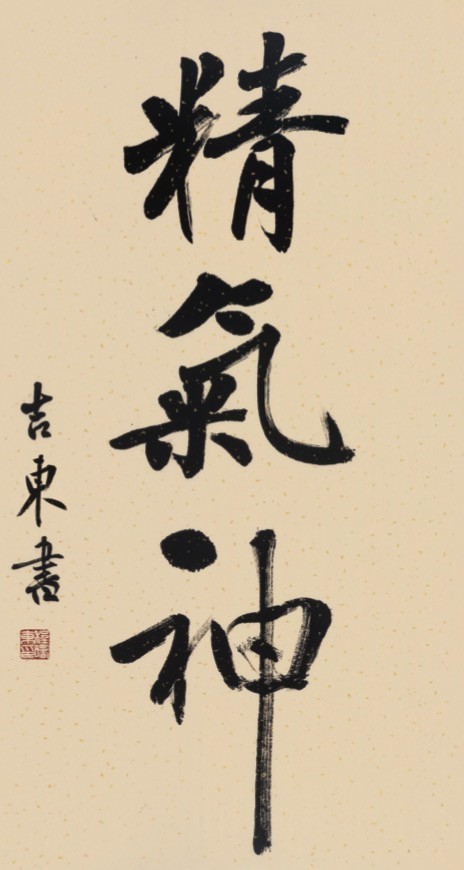 精氣神
吉東書